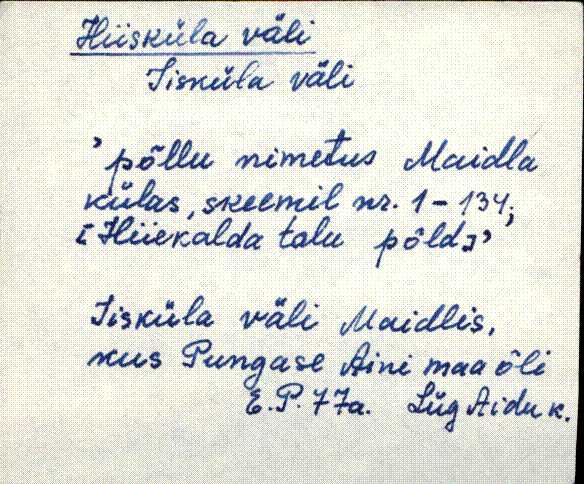 Hiisküla väli
Iisküla väli
'põllu nimetus Maidla
külas, skeemil nr. 1-134;
[Hiiekalda talu põld]'
Iisküla väli Maidlis,
kus Pungase Aini maa õli
E.P. 77a. Lüg Aidu k.